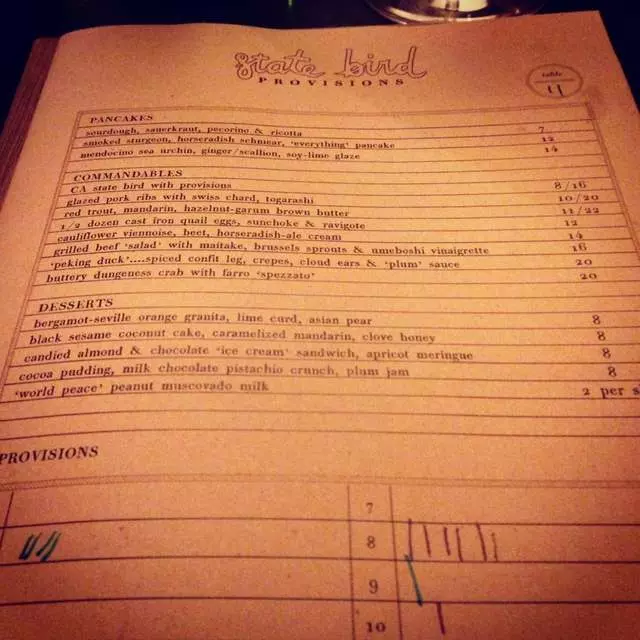 state bird
PROVISIONS
table
4
PANCAKES
sourdough, sauerkraut, pecorino & ricotta 7
smoked sturgeon, horseradish schmear, 'everything' pancake 12
mendocino sea urchin, ginger/scallion, soy-lime glaze 14
COMMANDABLES
CA state bird with provisions 8/16
glazed pork ribs with swiss chard, togarashi 10/20
red trout, mandarin, hazelnut-garum brown butter 11/22
1/2 dozen cast iron quail eggs, sunchoke & ravigote 12
cauliflower viennoise, beet, horseradish-ale cream 14
grilled beef 'salad' with maitake, brussels sprouts & umeboshi vinaigrette 16
'peking duck'....spiced confit leg, crepes, cloud ears & 'plum' sauce 20
buttery dungeness crab with farro 'spezzato' 20
DESSERTS
bergamot-seville orange granita, lime curd, asian pear 8
black sesame coconut cake, caramelized mandarin, clove honey 8
candied almond & chocolate 'ice cream' sandwich, apricot meringue 8
cocoa pudding, milk chocolate pistachio crunch, plum jam 8
'world peace' peanut muscovado milk 2 per s
PROVISIONS
7
8
9
10